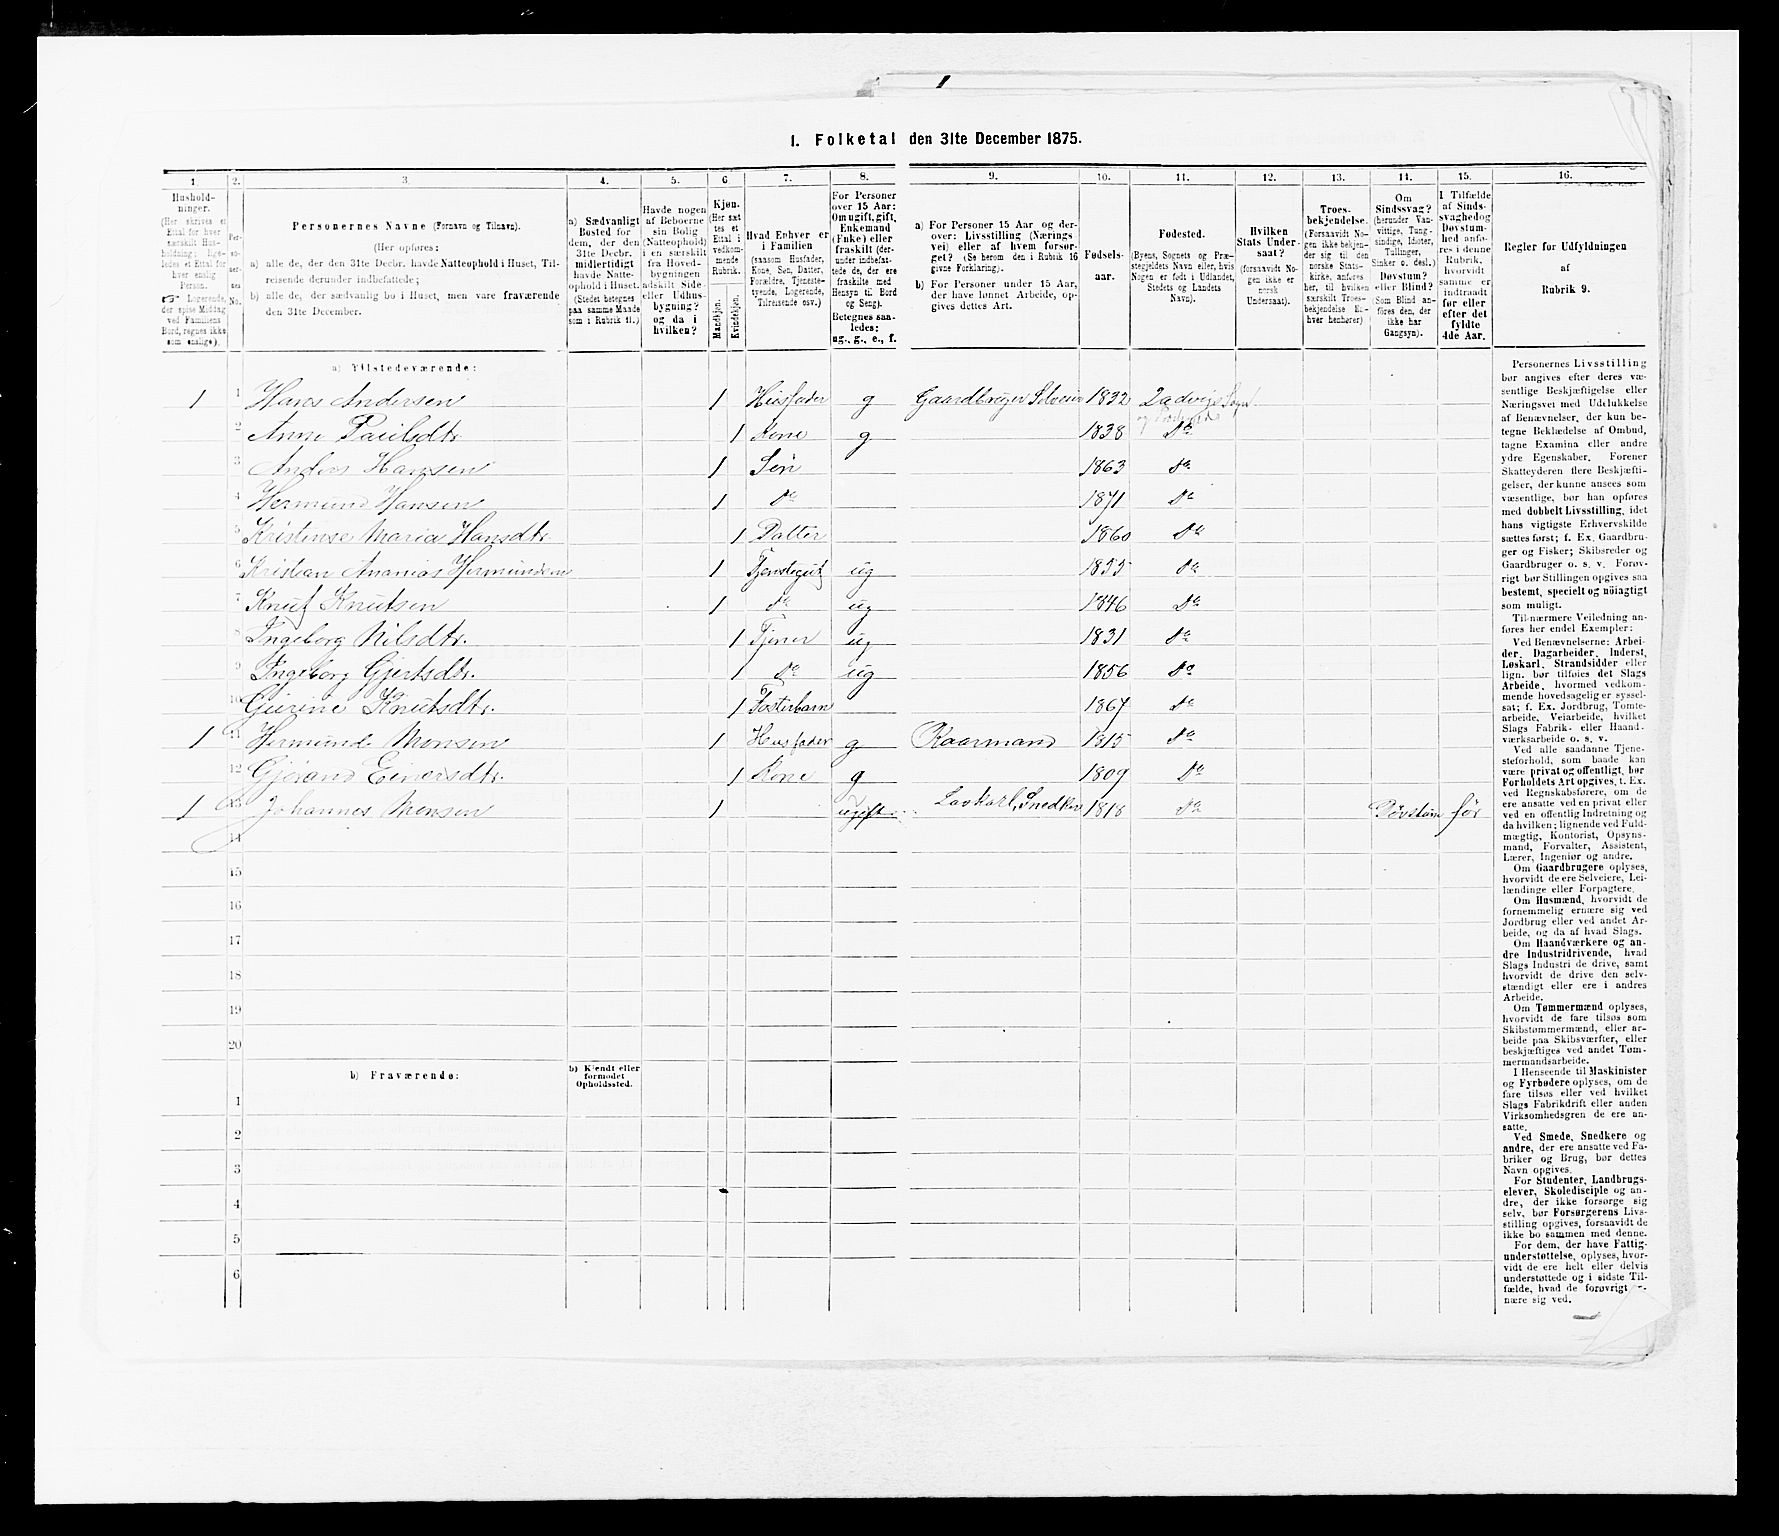 1. Folketal den 31te December 1875.
1. 2. 3. 4. 5. 6. 7. 8. 9. 10. 11. 12. 13. 14. 15. 16.
Hushold-
ninger.
(Her skrives et
Ettal for hver
særskilt Hus-
holdning; lige-
ledes et Ettal for
hver enslig
Person.
☞ Logerende,
der spise Middag
ved Familiens
Bord, regnes ikke
som enslige).
Per-
so-
ner-
nes
No.
Personernes Navne (Fornavn og Tilnavn).
(Her opføres:
a) alle de, der den 31te Decbr. havde Natteophold i Huset, Til-
reisende derunder indbefattede;
b) alle de, der sædvanlig bo i Huset, men vare fraværende
den 31te December.
a) Sædvanligt
Bosted for
dem, der den
31te Decbr.
midlertidigt
havde Natte-
ophold i Huset.
(Stedet betegnes
paa samme Maade
som i Rubrik 11.)
Havde nogen
af Beboerne
sin Bolig
(Natteophold)
i en særskilt
fra Hoved-
bygningen
adskilt Side-
eller Udhus-
bygning?
og da i
hvilken?
Kjøn.
(Her sæt-
tes et
Ettal i
vedkom-
mende
Rubrik.
Mandkjøn.
Kvindekjøn.
Hvad Enhver er
i Familien
(saasom Husfader,
Kone, Søn, Datter,
Forældre, Tjeneste-
tyende, Logerende,
Tilreisende osv.)
For Personer
over 15 Aar:
Om ugift, gift,
Enkemand
(Enke) eller
fraskilt (der-
under indbefat-
tede de, der ere
fraskilte med
Hensyn til Bord
og Seng).
Betegnes saa-
ledes:
ug., g., e., f.
a) For Personer 15 Aar og der-
over: Livsstilling (Nærings-
vei) eller af hvem forsør-
get? (Se herom den i Rubrik 16
givne Forklaring).
b) For Personer under 15 Aar,
der have lønnet Arbeide, op-
gives dettes Art.
Fødsels-
aar.
Fødested.
(Byens, Sognets og Præ-
stegjeldets Navn eller, hvis
Nogen er født i Udlandet,
Stedets og Landets
Navn).
Hvilken
Stats Under-
saat?
(forsaavidt No-
gen ikke er
norsk
Undersaat).
Troes-
bekjendelse.
(Forsaavidt No-
gen ikke bekjen-
der sig til den
norske Stats-
kirke, anføres
her, til hvilken
særskilt Troes-
bekjendelse En-
hver henhører)
Om
Sindssvag?
(herunder Van-
vittige, Tung-
sindige, Idioter,
Tullinger,
Sinker o. desl.)
Døvstum?
eller Blind?
(Som Blind an-
føres den, der
ikke har
Gangsyn).
I Tilfælde
af Sinds-
svaghed og
Døvstum-
hed anfø-
res i denne
Rubrik,
hvorvidt
samme er
indtraadt
før eller
efter det
fyldte
4de Aar.
Regler for Udfyldningen
af
Rubrik 9.
a) Tilstedeværende:
1 1 Hans Andersen 1 Husfader g Gaardbruger Selveier 1832 Ladvigs Sogn
2 Anne Paulsdtr. 1 Kone g 1838 Do
3 Anders Hansen 1 Søn 1863 Do
4 Hermund Hansen 1 Do 1871 Do
5 Kristense Maria Hansdtr. 1 Datter 1860 Do
6 Kristian Ananias Hermundsen 1 Tjenstegut ug 1855 Do
7 Knut Knutsen 1 Do ug 1846 Do
8 Ingeborg Nilsdtr. 1 Tjener ug 1831 Do
9 Ingeborg Gjertsdtr. 1 Do ug 1856 Do
10 Gurine Knutsdtr. 1 Fosterbarn 1867 Do
1 11 Hermund Monsen 1 Husfader g Kaarmand 1815 Do
12 Gjørand Einersdtr. 1 Kone g 1809 Do
1 13 Johannes Monsen 1 ugift Snedker 1818 Do Døvstum før
14
15
16
17
18
19
20
b) Fraværende:
b) Kjendt eller
formodet
Opholdssted.
1
2
3
4
5
6
Personernes Livsstilling
bør angives efter deres væ-
sentlige Beskjæftigelse eller
Næringsvei med Udelukkelse
af Benævnelser, der kun be-
tegne Beklædelse af Ombud,
tagne Examina eller andre
ydre Egenskaber. Forener
Skatteyderen flere Beskjæfti-
gelser, der kunne ansees som
væsentlige, bør han opføres
med dobbelt Livsstilling, idet
hans vigtigste Erhvervskilde
sættes først; f. Ex. Gaardbru-
ger og Fisker; Skibsreder og
Gaardbruger o. s. v. Forøv-
rigt bør Stillingen opgives saa
bestemt, specielt og nøiagtigt
som muligt.
Til nærmere Veiledning an-
føres her endel Exempler:
Ved Benævnelserne: Arbei-
der, Dagarbeider, Inderst,
Løskarl, Strandsidder eller
lign. bør tilføies det Slags
Arbeide, hvormed vedkom-
mende hovedsagelig er syssel-
sat; f. Ex. Jordbrug, Tomte-
arbeide, Veiarbeide, hvilket
Slags Fabrik- eller Haand-
værksarbeide o. s. v.
Ved alle saadanne Tjene-
steforhold, som baade kan
være privat og offentligt, bør
Forholdets Art opgives, t. Ex.
ved Regnskabsførere, om de
ere ansatte ved en privat eller
ved en offentlig Indretning og
da hvilken; lignende ved Fuld-
mægtig, Kontorist, Opsyns-
mand, Forvalter, Assistent,
Lærer, Ingeniør og andre.
Om Gaardbrugere oplyses,
hvorvidt de ere Selveiere, Lei-
lændinge eller Forpagtere.
Om Husmænd, hvorvidt de
fornemmelig ernære sig ved
Jordbrug eller ved andet Ar-
beide, og da af hvad Slags.
Om Haandværkere og an-
dre Industridrivende, hvad
Slags Industri de drive, samt
hvorvidt de drive den selv-
stændigt eller ere i andres
Arbeide.
Om Tømmermænd oplyses,
hvorvidt de fare tilsøs som
Skibstømmermænd, eller ar-
beide paa Skibsværfter, eller
beskjæftiges ved andet Tøm-
mermandsarbeide.
I Henseende til Maskinister
og Fyrbødere oplyses, om de
fare tilsøs eller ved hvilket
Slags Fabrikdrift eller anden
Virksomhedsgren de ere an-
satte.
Ved Smede, Snedkere og
andre, der ere ansatte ved Fa-
briker og Brug, bør dettes
Navn opgives.
For Studenter, Landbrugs-
elever, Skoledisciple og an-
dre, der ikke forsørge sig
selv, bør Forsørgerens Livs-
stilling opgives, forsaavidt de
ikke bo sammen med denne.
For dem, der have Fattig-
understøttelse, oplyses, hvor-
vidt de ere helt eller delvis
understøttede og i sidste Til-
fælde, hvad de forøvrigt er-
nære sig ved.